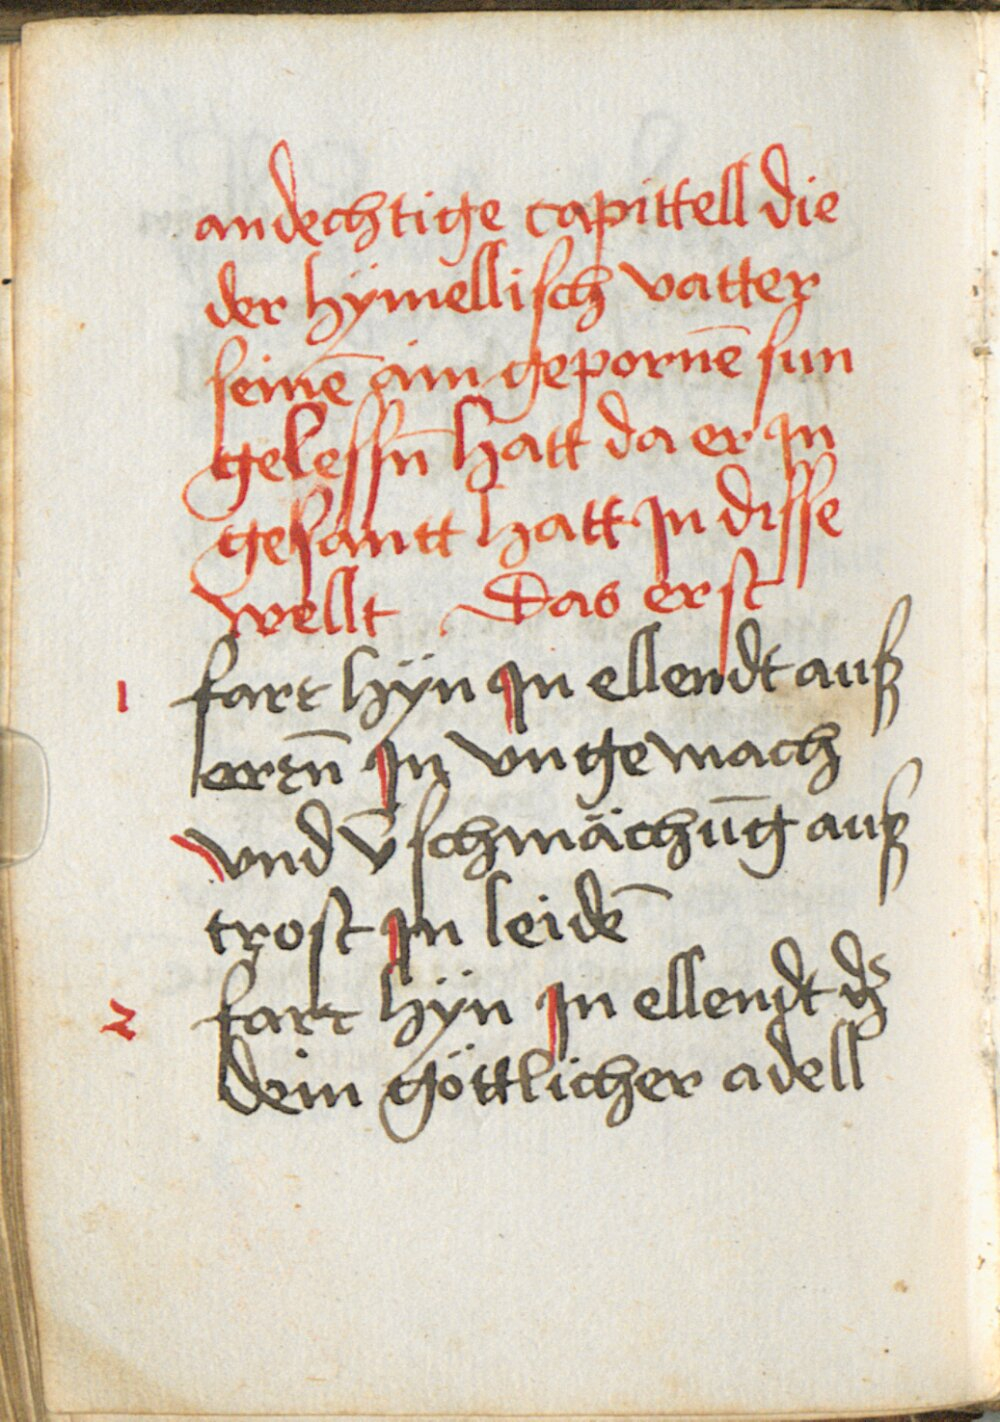 andechtige capittell die
der hÿmellisch vatter
seinē ain gepornē sun
gelessn̄ hatt da er in
gesantt hatt In disse
wellt Das erst
1 fart hÿn In ellendt auß
eren̄ In vngemach
vnd v̄schmächūg auß
trost In leidē
2 fart hÿn In ellendt dz
dein göttlicher adell